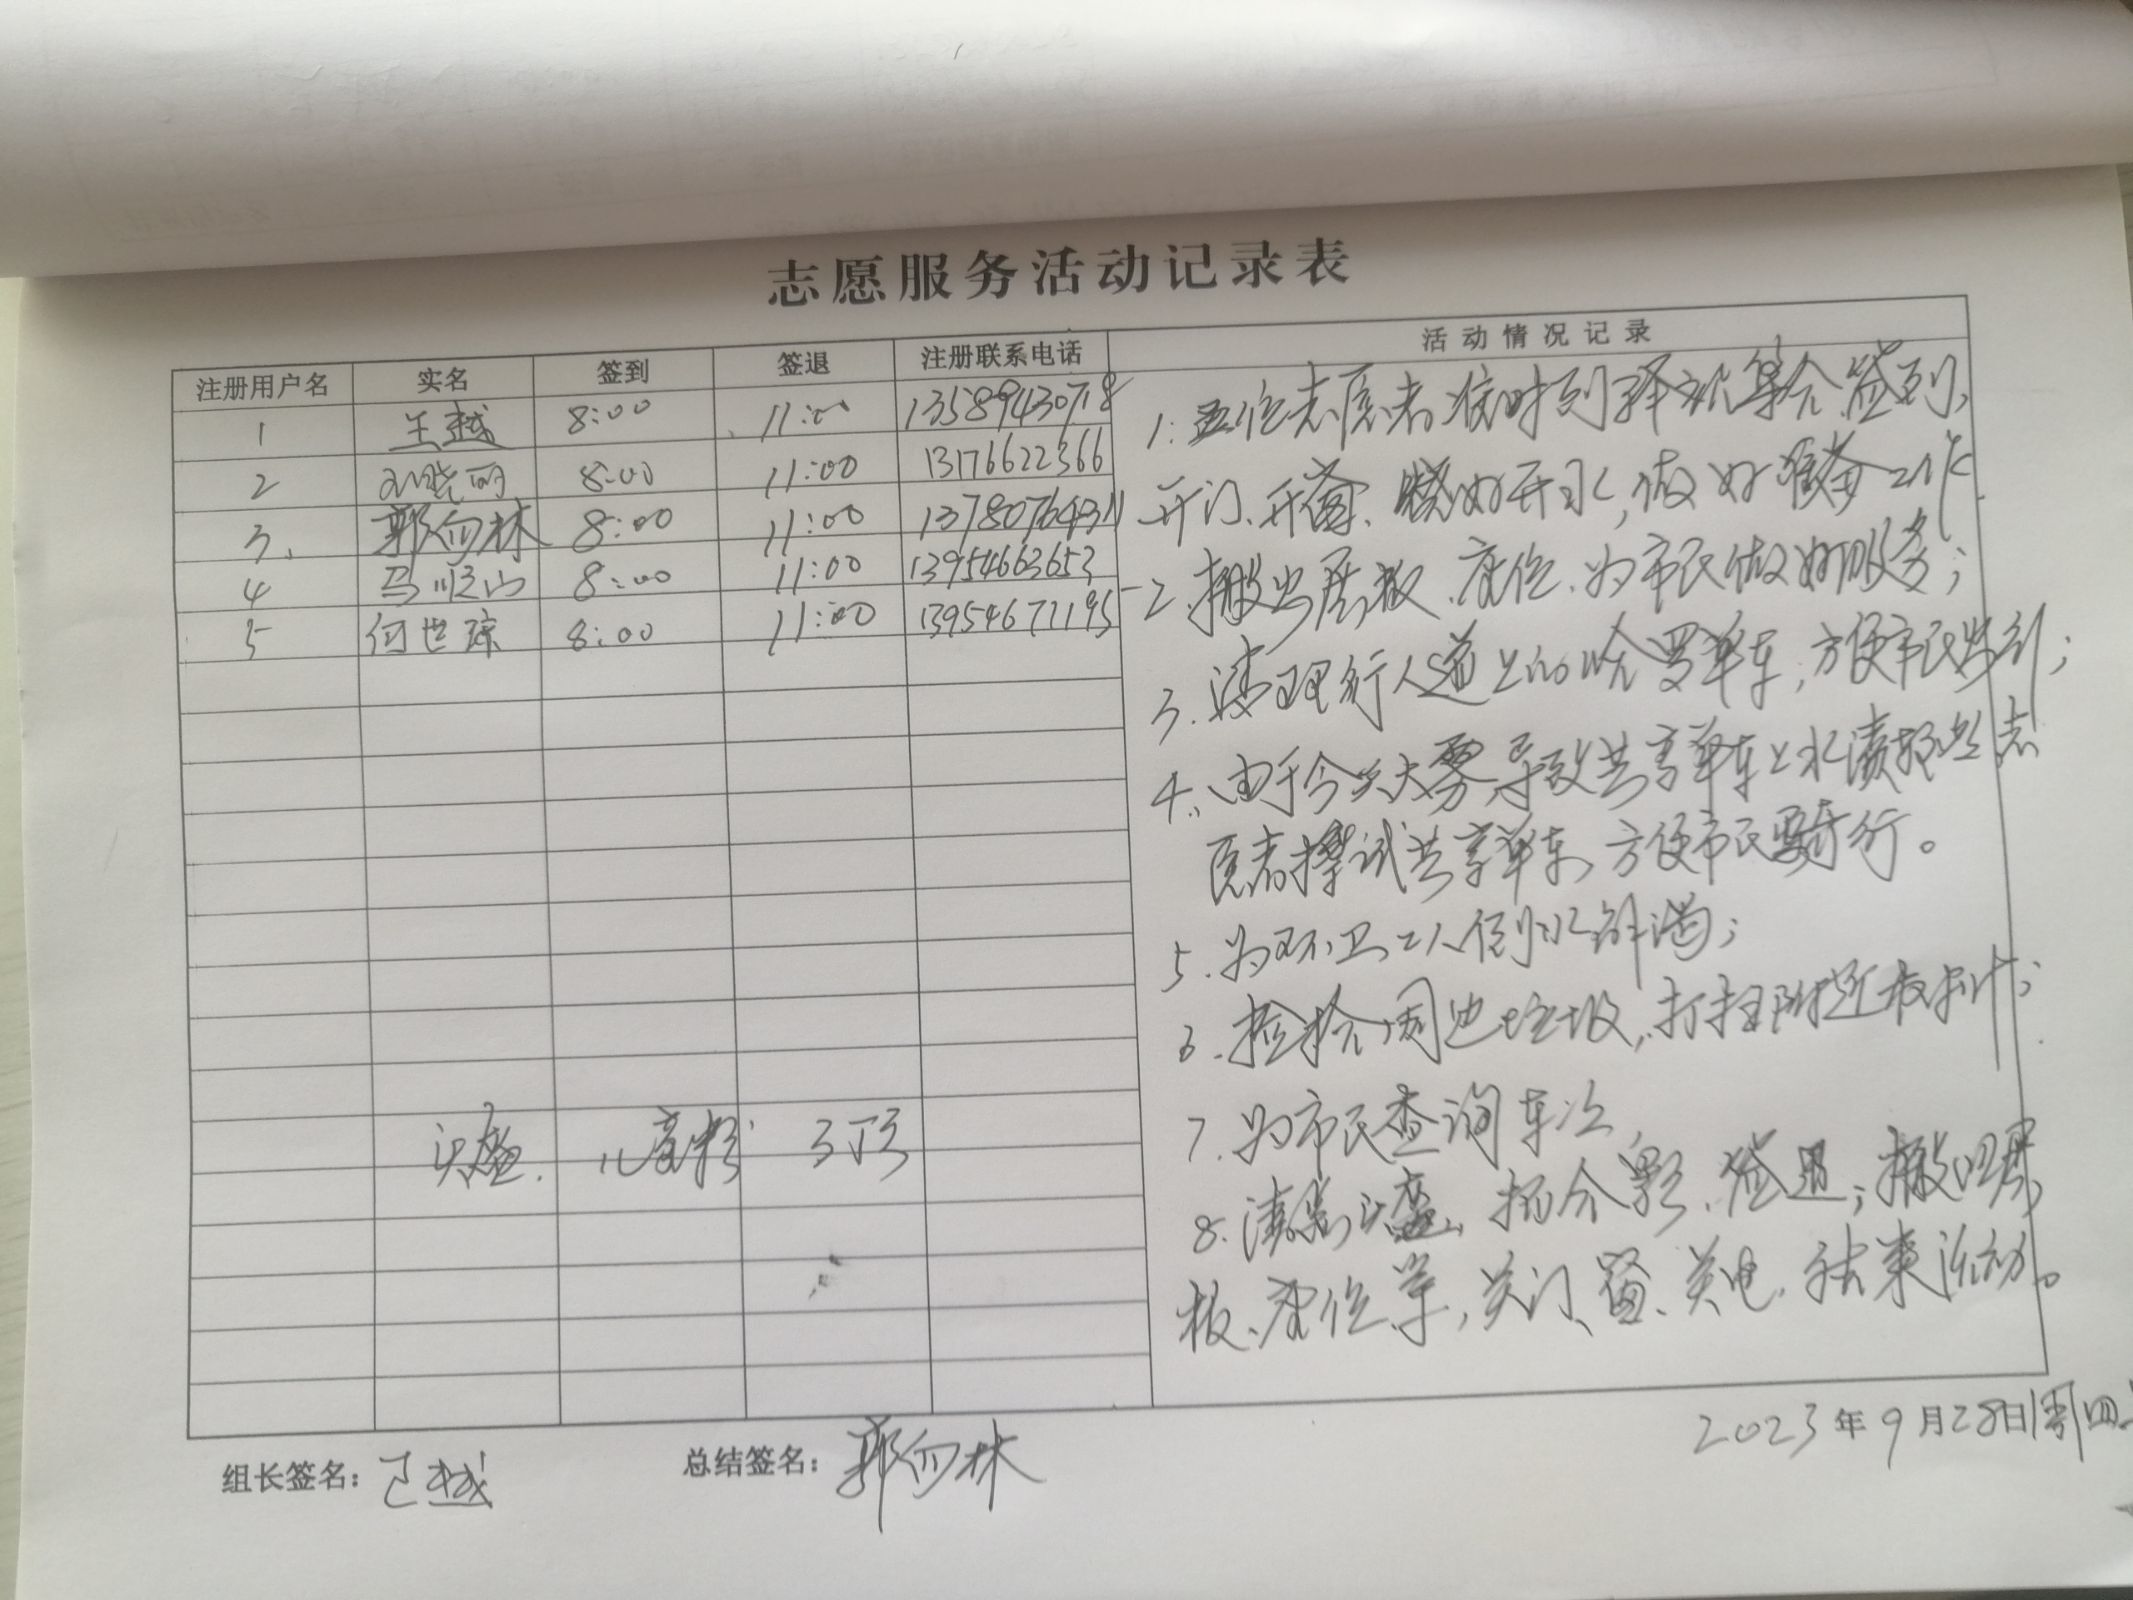 志愿服务活动记录表
注册用户名 实名 签到 签退 注册联系电话 活动情况记录
1 王越 8:00 11:00 13589430718
2 刘晓丽 8:00 11:00 13176622366
3、 郭向林 8:00 11:00 13780764311
4 马顺山 8:00 11:00 13954663653
5 何世琼 8:00 11:00 13954671195
头盔. 儿童粉 3顶
1. 五位志愿者准时到驿站集合签到、
开门、开窗、烧好开水,做好准备工作
2、搬出展板、座位、为市民做好服务;
3. 清理行人道上的哈罗单车,方便市民出行;
4、由于今天大雾导致共享单车上水渍 志
愿者擦试共享单车、方便市民骑行。
5. 为环卫工人倒水解渴;
6. 捡拾周边垃圾,打扫附近 ;
7. 为市民查询车次
8. 清点头盔、拍合影、签退;搬回展
板、座位等,关门、窗、关电.结束活动。
组长签名: 王越 总结签名: 郭向林
2023年9月28日(周四)